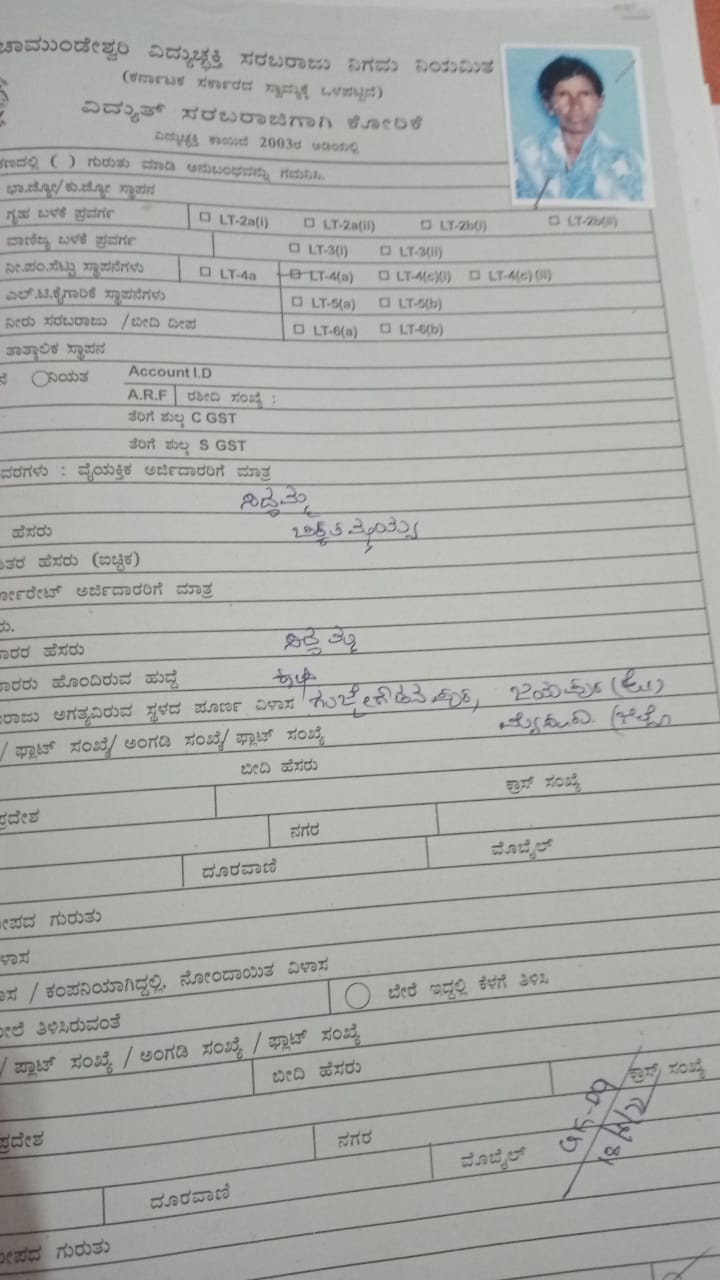 ಚಾಮುಂಡೇಶ್ವರಿ ವಿದ್ಯುಚ್ಛಕ್ತಿ ಸರಬರಾಜು ನಿಗಮ ನಿಯಮಿತ
(ಕರ್ನಾಟಕ ಸರ್ಕಾರದ ಸ್ವಾಮ್ಯಕ್ಕೆ ಒಳಪಟ್ಟಿದೆ)
ವಿದ್ಯುತ್ ಸರಬರಾಜಿಗಾಗಿ ಕೋರಿಕೆ
ವಿದ್ಯುಚ್ಛಕ್ತಿ ಕಾಯಿದೆ 2003ರ ಅಡಿಯಲ್ಲಿ
( ) ಗುರುತು ಮಾಡಿ ಅನುಬಂಧವನ್ನು ಗಮನಿಸಿ.
ಭಾ.ಜ್ಯೋ/ಕು.ಜ್ಯೋ ಸ್ಥಾಪನ
ಗೃಹ ಬಳಕೆ ಪ್ರವರ್ಗ ☐ LT-2a(i) ☐ LT-2a(ii) ☐ LT-2b(i) ☐ LT-2b(ii)
ವಾಣಿಜ್ಯ ಬಳಕೆ ಪ್ರವರ್ಗ ☐ LT-3(i) ☐ LT-3(ii)
ನೀ.ಪಂ.ಸೆಟ್ಟು ಸ್ಥಾಪನೆಗಳು ☐ LT-4a ☐ LT-4(a) ☐ LT-4(c)(i) ☐ LT-4(c)(ii)
ಎಲ್.ಟಿ.ಕೈಗಾರಿಕೆ ಸ್ಥಾಪನೆಗಳು ☐ LT-5(a) ☐ LT-5(b)
ನೀರು ಸರಬರಾಜು /ಬೀದಿ ದೀಪ ☐ LT-6(a) ☐ LT-6(b)
ತಾತ್ಕಾಲಿಕ ಸ್ಥಾಪನ
ನಿಯತ Account I.D
A.R.F ರಶೀದಿ ಸಂಖ್ಯೆ :
ತೆರಿಗೆ ಶುಲ್ಕ C GST
ತೆರಿಗೆ ಶುಲ್ಕ S GST
ವರಗಳು : ವೈಯಕ್ತಿಕ ಅರ್ಜಿದಾರರಿಗೆ ಮಾತ್ರ
ಸಿದ್ದಮ್ಮ
ಹೆಸರು
ಹೆಸರು (ಐಚ್ಛಿಕ)
ರ್ಪೋರೇಟ್ ಅರ್ಜಿದಾರರಿಗೆ ಮಾತ್ರ
ದಾರರ ಹೆಸರು ಸಿದ್ದಮ್ಮ
ದಾರರು ಹೊಂದಿರುವ ಹುದ್ದೆ
ರಾಜು ಅಗತ್ಯವಿರುವ ಸ್ಥಳದ ಪೂರ್ಣ ವಿಳಾಸ
/ ಫ್ಲಾಟ್ ಸಂಖ್ಯೆ/ ಅಂಗಡಿ ಸಂಖ್ಯೆ/ ಫ್ಲಾಟ್ ಸಂಖ್ಯೆ
ಬೀದಿ ಹೆಸರು ಕ್ರಾಸ್ ಸಂಖ್ಯೆ
ಪ್ರದೇಶ ನಗರ
ದೂರವಾಣಿ ಮೊಬೈಲ್
ಪದ ಗುರುತು
ಳಾಸ
ಾಸ / ಕಂಪನಿಯಾಗಿದ್ದಲ್ಲಿ, ನೋಂದಾಯಿತ ವಿಳಾಸ
ಮೇಲೆ ತಿಳಿಸಿರುವಂತೆ ಬೇರೆ ಇದ್ದಲ್ಲಿ ಕೆಳಗೆ ತಿಳಿಸಿ
/ ಪ್ಲಾಟ್ ಸಂಖ್ಯೆ / ಅಂಗಡಿ ಸಂಖ್ಯೆ / ಫ್ಲಾಟ್ ಸಂಖ್ಯೆ
ಬೀದಿ ಹೆಸರು ಕ್ರಾಸ್ ಸಂಖ್ಯೆ
ಪ್ರದೇಶ ನಗರ
ದೂರವಾಣಿ ಮೊಬೈಲ್
ಪದ ಗುರುತು